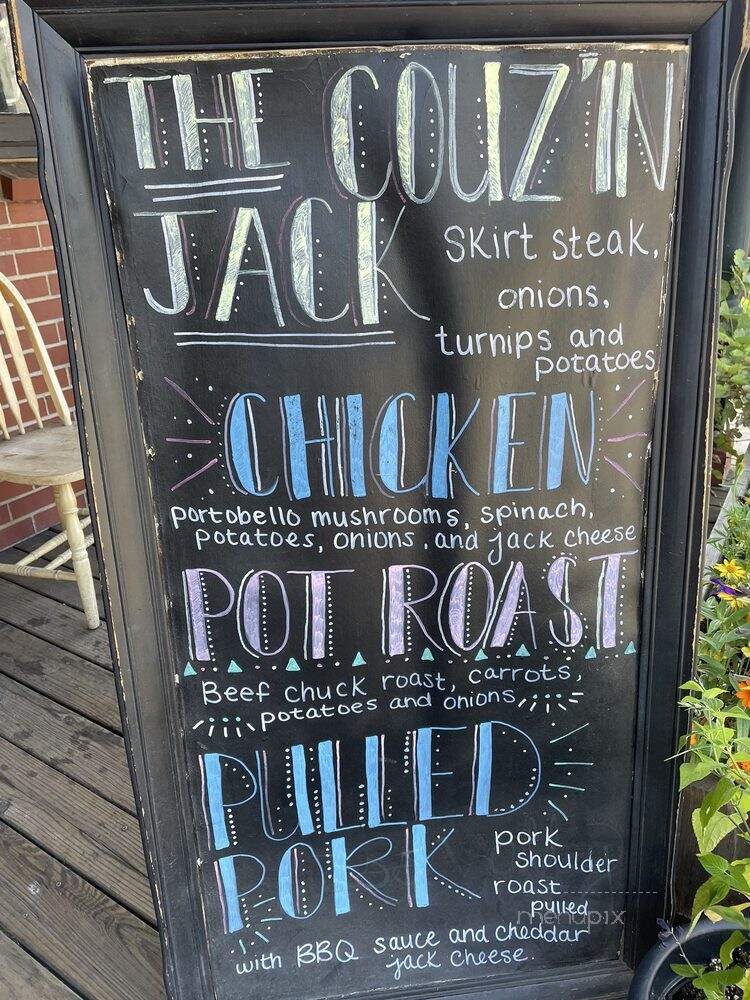 THE COUZ'IN
JACK
Skirt steak,
onions,
turnips and
potatoes
CHICKEN
portobello mushrooms, spinach,
potatoes, onions, and jack cheese
POT ROAST
Beef chuck roast, carrots,
potatoes and onions
PULLED
PORK
pork
shoulder
roast
pulled
menupix
with BBQ sauce and cheddar
jack cheese.